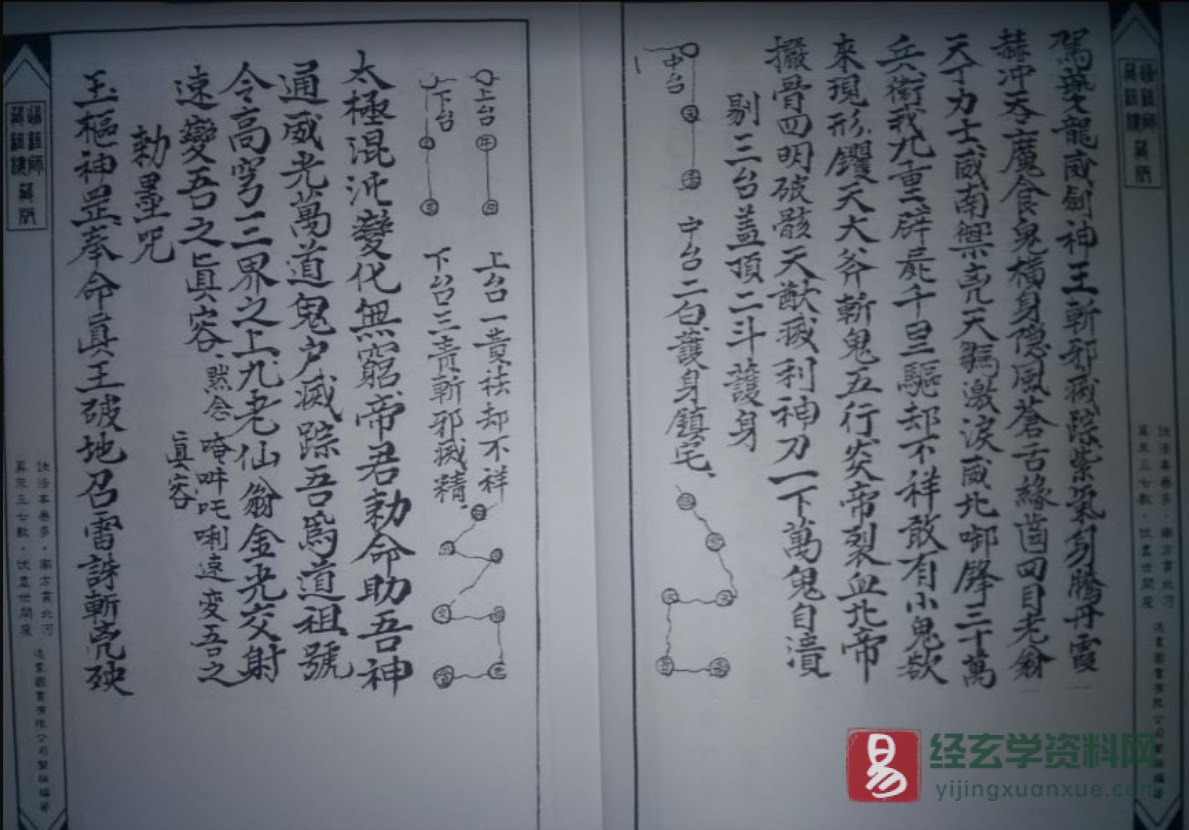 駕夔龍威劍神王斬邪滅踪紫氣乘騰丹霞
赫冲吞魔食鬼橫身隐風蒼舌緑齒四目老翁
天丁力士威南禦兇天騶激淚威北啣鋒三十萬
兵衛我九重辟屍千里驅却不祥敢有小鬼欲
來現形钁天大斧斬鬼五行炎帝裂血北帝
撮骨四明破骸天猷滅利神刀一下萬鬼自潰
剔三台蓋頂二斗護身
中台
中台二白護身鎮宅
上台
下台
上台一黄祛却不祥
下台三青斬邪滅精
太極混沌變化無窮帝君勅命助吾神
通威光萬道鬼户滅踪吾為道祖號
令高穹三界之上九老仙翁金光交射
速變吾之真容、默念唵吽吒唎速变吾之
真容
勅墨咒
玉樞神罡奉命真王破地召雷誅斬兇殃
易
经玄学资料网
yijingxuanxue.com